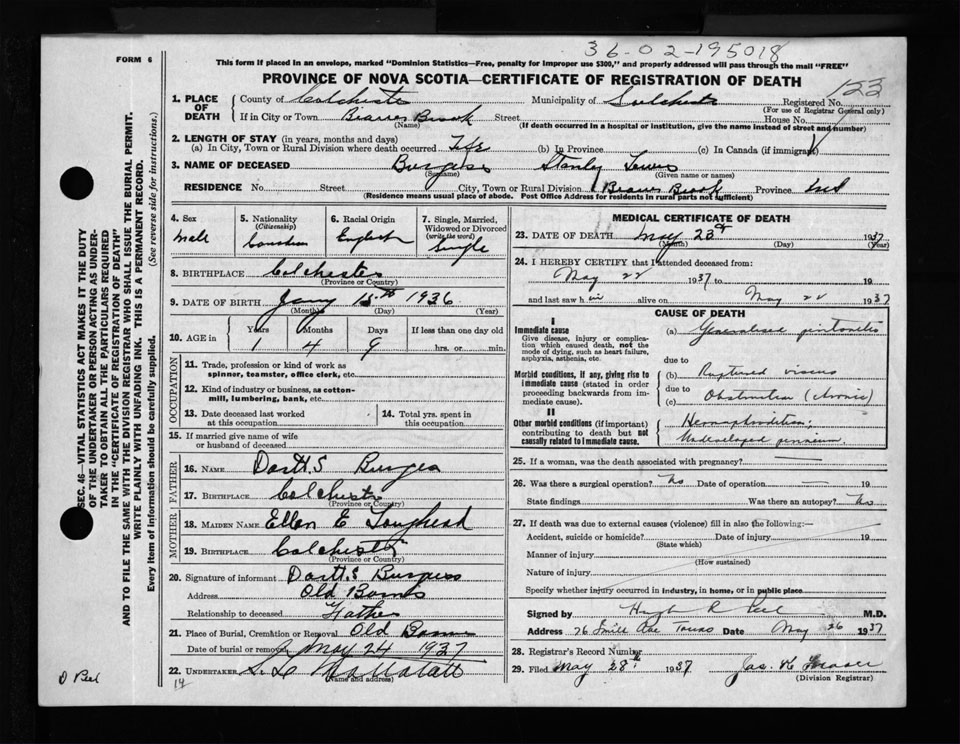 36-02-195018
FORM 6
This form if placed in an envelope, marked "Dominion Statistics—Free, penalty for improper use $300," and properly addressed will pass through the mail "FREE"
PROVINCE OF NOVA SCOTIA—CERTIFICATE OF REGISTRATION OF DEATH
123
1. PLACE OF DEATH
County of Colchester Municipality of Colchester Registered No.
(For use of Registrar General only)
If in City or Town Beaver Brook Street House No.
(Name) (If death occurred in a hospital or institution, give the name instead of street and number)
2. LENGTH OF STAY (in years, months and days)
(a) In City, Town or Rural Division where death occurred Life (b) In Province (c) In Canada (if immigrant)
3. NAME OF DECEASED Burgess Stanley Lewis
(Surname) (Given name or names)
RESIDENCE No. Street City, Town or Rural Division Beaver Brook Province N S
(Residence means usual place of abode. Post Office Address for residents in rural parts not sufficient)
4. Sex
male
5. Nationality
(Citizenship)
Canadian
6. Racial Origin
English
7. Single, Married, Widowed or Divorced
(write the word)
Single
8. BIRTHPLACE Colchester
(Province or Country)
9. DATE OF BIRTH Jany 15th 1936
(Month) (Day) (Year)
10. AGE in
Years Months Days If less than one day old
1 4 9 hrs. or min.
OCCUPATION
11. Trade, profession or kind of work as
spinner, teamster, office clerk, etc.
12. Kind of industry or business, as cotton-
mill, lumbering, bank, etc.
13. Date deceased last worked
at this occupation
14. Total yrs. spent in
this occupation
15. If married give name of wife
or husband of deceased
FATHER
16. NAME Dortt. S Burgess
17. BIRTHPLACE Colchester
(Province or Country)
MOTHER
18. MAIDEN NAME Ellen E Loughead
19. BIRTHPLACE Colchester
(Province or Country)
20. Signature of informant Dortt. S Burgess
Address Old Barns
Relationship to deceased Father
21. Place of Burial, Cremation or Removal Old Barns
Date of burial or removal May 24 1937
22. UNDERTAKER
(Name and address)
MEDICAL CERTIFICATE OF DEATH
23. DATE OF DEATH May 23rd 1937
(Month) (Day) (Year)
24. I HEREBY CERTIFY that I attended deceased from:
May 22 1937 to 19
and last saw him alive on May 22 1937
CAUSE OF DEATH
I
Immediate cause
Give disease, injury or complica-
tion which caused death, not the
mode of dying, such as heart failure,
asphyxia, asthenia, etc.
(a) Generalized peritonitis
due to
Morbid conditions, if any, giving rise to
immediate cause (stated in order
proceeding backwards from im-
mediate cause).
(b) Ruptured viscus
due to
(c) Obstruction (chronic)
II
Other morbid conditions (if important)
contributing to death but not
causally related to immediate cause.
Hermaphroditism;
Undeveloped perineum
25. If a woman, was the death associated with pregnancy? —
26. Was there a surgical operation? No Date of operation —
State findings Was there an autopsy? No
27. If death was due to external causes (violence) fill in also the following:—
Accident, suicide or homicide? Date of injury 19
(State which)
Manner of injury
(How sustained)
Nature of injury
Specify whether injury occurred in industry, in home, or in public place
Signed by Hugh R Peel M.D.
Address 76 Truro Date May 26 1937
28. Registrar's Record Number
29. Filed May 28th 1937 Jas. H Fraser
(Division Registrar)
SEC. 46—VITAL STATISTICS ACT MAKES IT THE DUTY
OF THE UNDERTAKER OR PERSON ACTING AS UNDER-
TAKER TO OBTAIN ALL THE PARTICULARS REQUIRED
IN THE "CERTIFICATE OF REGISTRATION OF DEATH"
AND TO FILE THE SAME WITH THE DIVISION REGISTRAR WHO SHALL ISSUE THE BURIAL PERMIT.
WRITE PLAINLY WITH UNFADING INK. THIS IS A PERMANENT RECORD.
Every item of information should be carefully supplied. (See reverse side for instructions.)